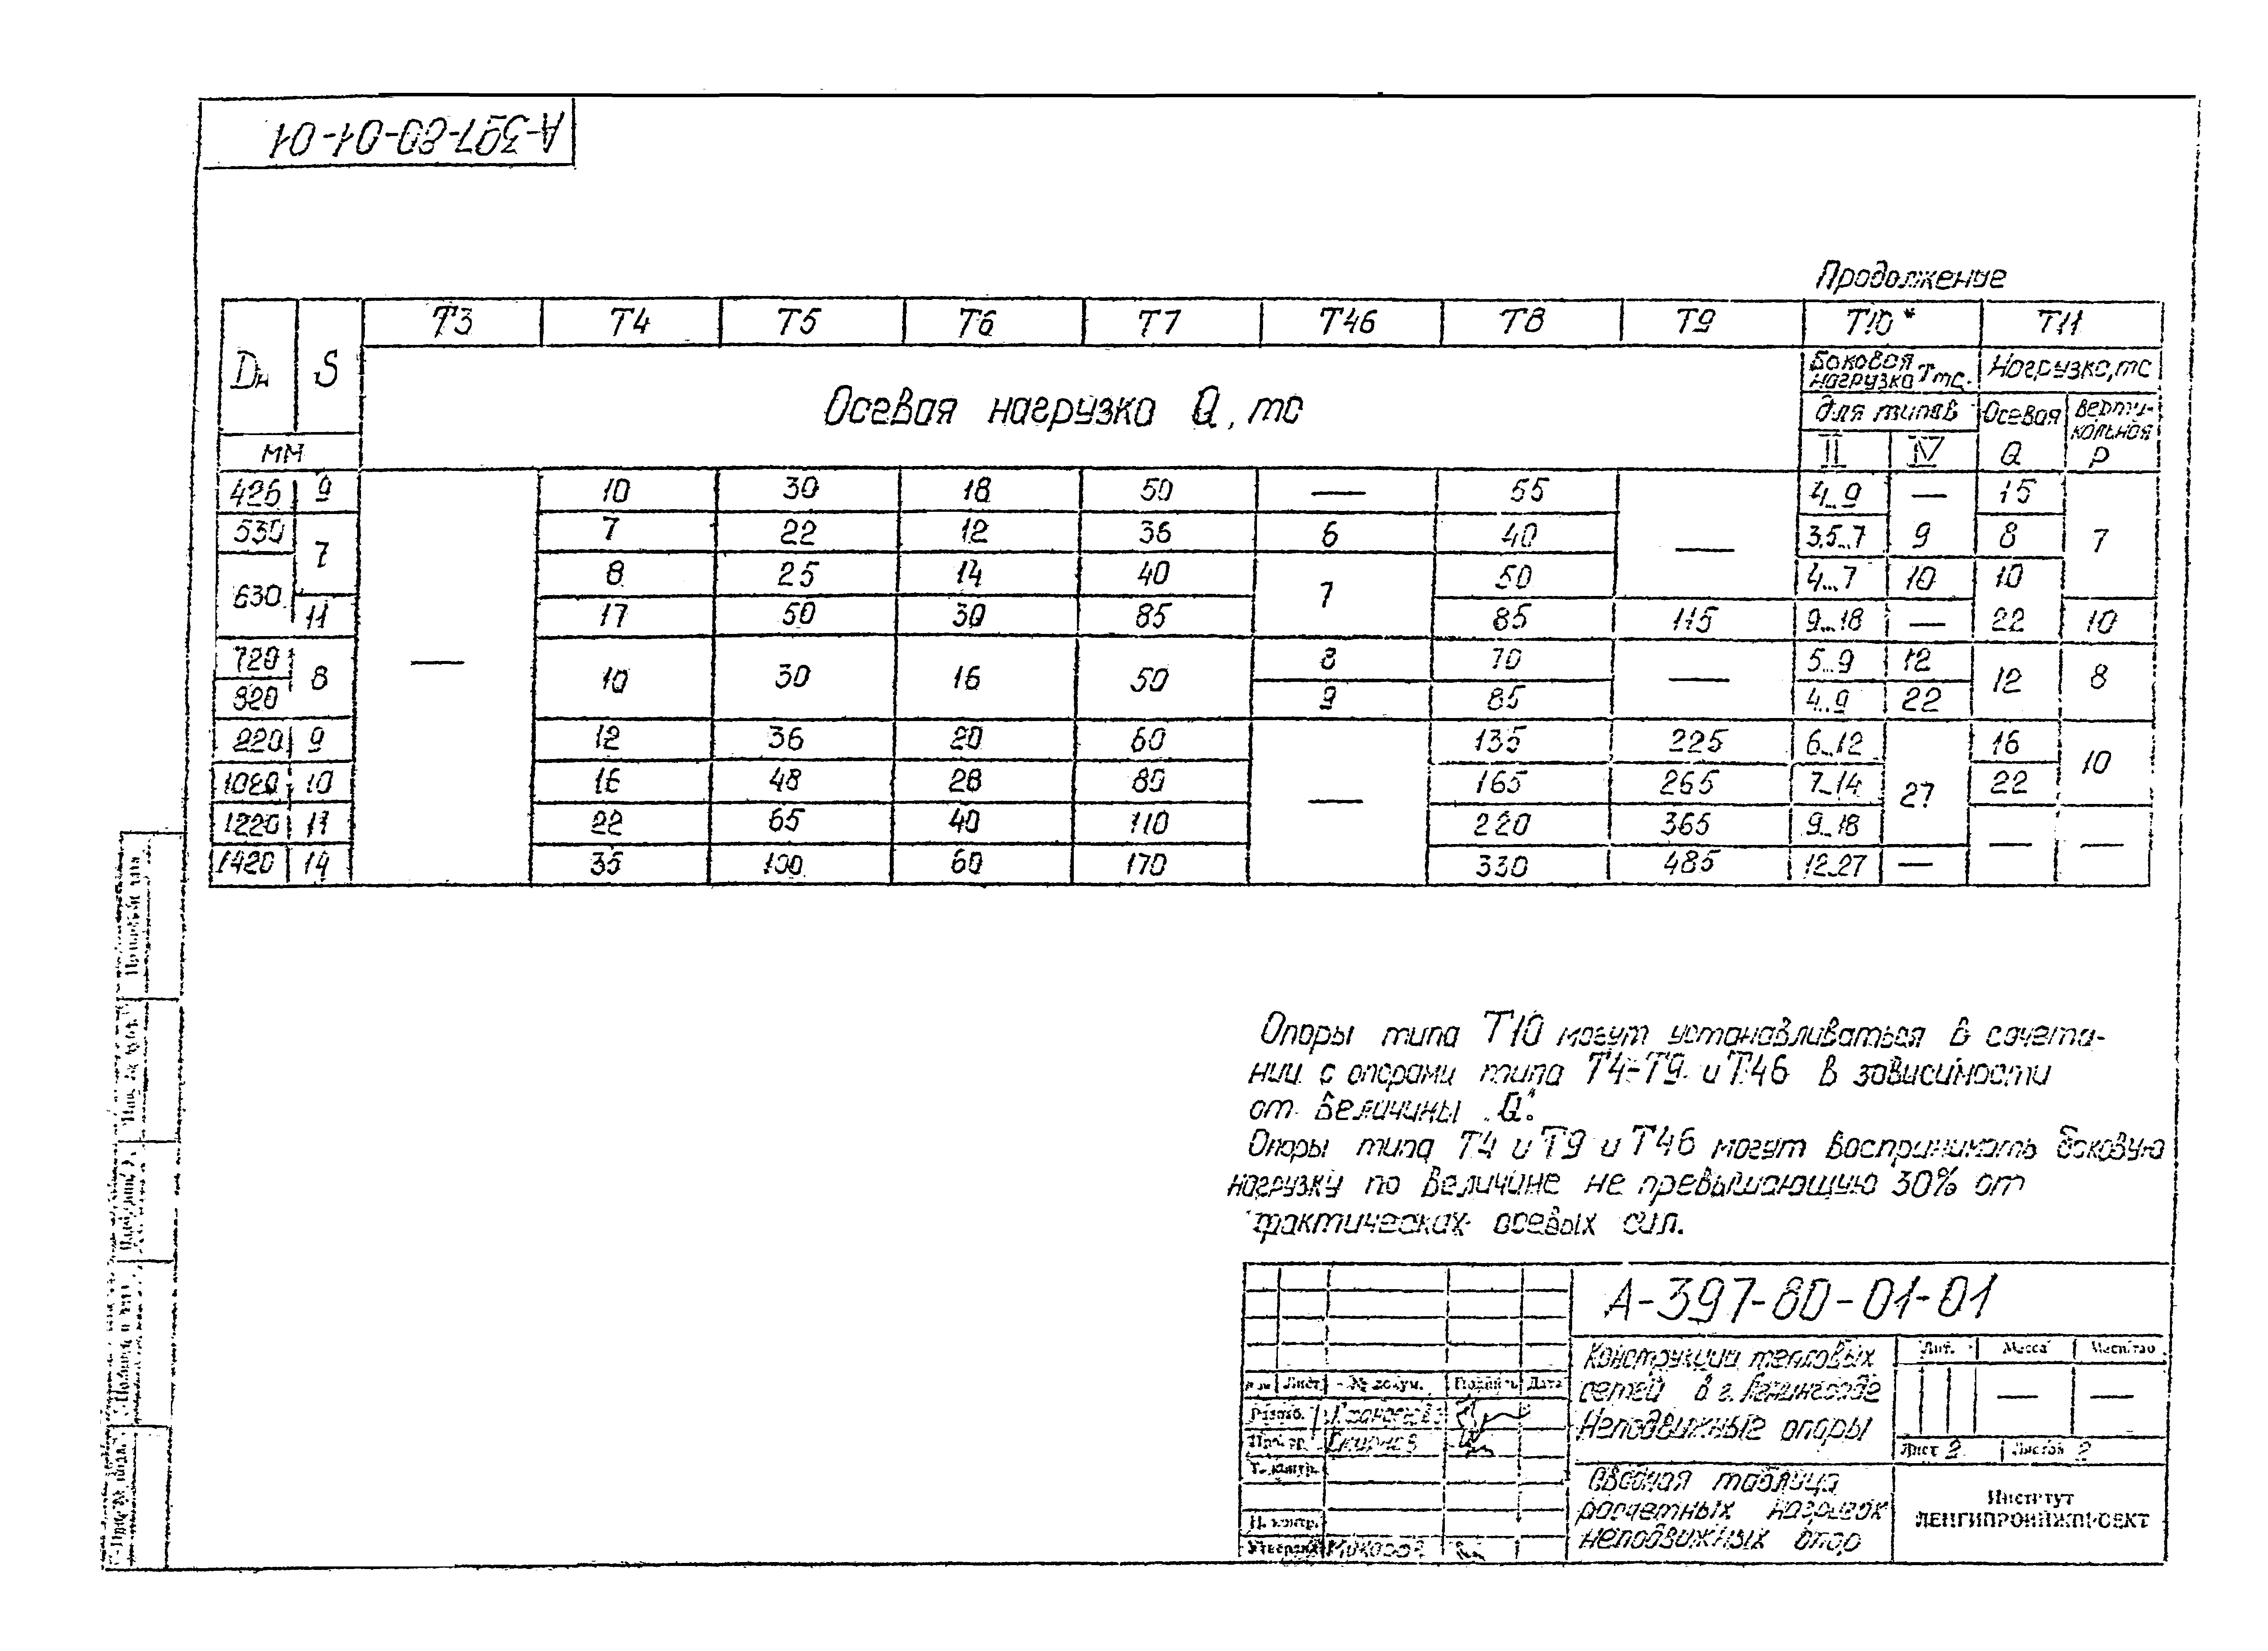 А-397-80-01-01
Продолжение
Dн S Т3 Т4 Т5 Т6 Т7 Т46 Т8 Т9 Т10* Т11
Осевая нагрузка Q, тс
Боковая нагрузка T тс. Нагрузка, тс
для типов Осевая Q Вертикальная P
мм II IV
426 9 — 10 30 18 50 — 55 — 4...9 — 15 7
530 7 7 22 12 36 6 40 3,5...7 9 8
630 8 25 14 40 7 50 4...7 10 10
11 17 50 30 85 85 115 9...18 — 22 10
720 8 10 30 16 50 8 70 — 5...9 12 12 8
820 9 85 4...9 22
220 9 12 36 20 60 — 135 225 6...12 27 16 10
1020 10 16 48 28 80 165 265 7...14 22
1220 11 22 65 40 110 220 365 9...18 — —
1420 14 35 100 60 170 330 485 12...27 —
Опоры типа Т10 могут устанавливаться в сочета-
нии с опорами типа Т4-Т9 и Т46 в зависимости
от величины „Q".
Опоры типа Т4 и Т9 и Т46 могут воспринимать боковую
нагрузку по величине не превышающую 30% от
фактических осевых сил.
А-397-80-01-01
Конструкции тепловых
сетей в г. Ленинграде
Неподвижные опоры
Лит. Масса Масштаб
— —
Лист 2 Листов 2
Лист № докум. Подпись Дата
Разраб.
Пров. Смирнов
Т. контр.
Н. контр.
Утвердил
Сводная таблица
расчетных нагрузок
неподвижных опор
Институт
ЛЕНГИПРОИНЖПРОЕКТ